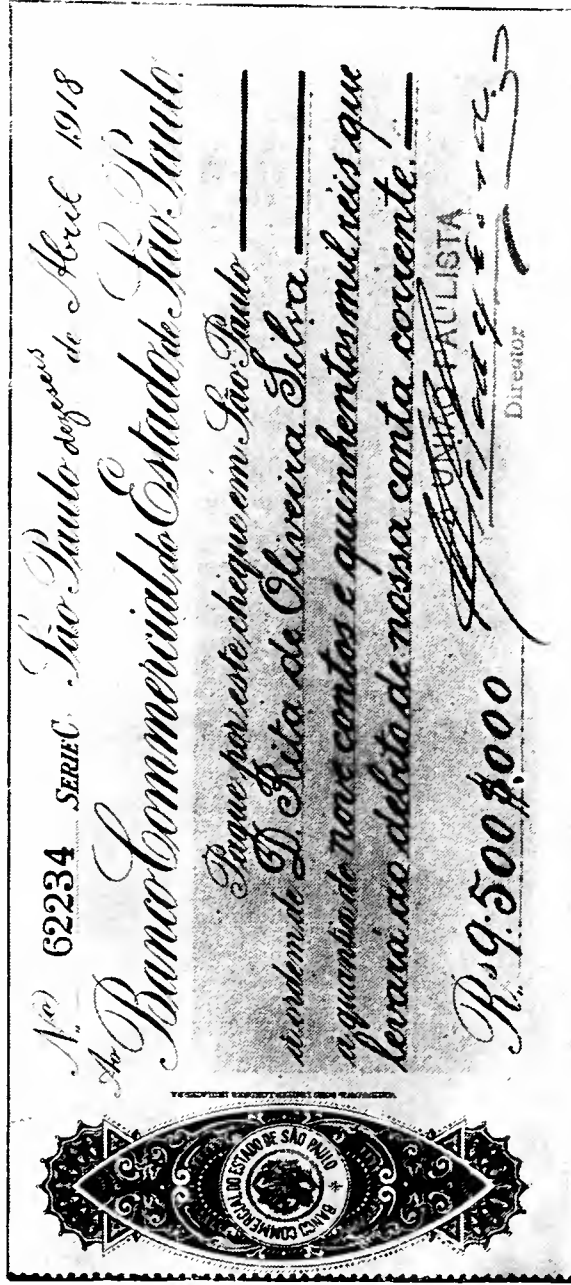 No 62234 SERIE C. São Paulo dezeseis de Abril 1918
Ao Banco Commercial do Estado de São Paulo.
Pague por este cheque em São Paulo
á ordem de D. Rita de Oliveira Silva
a quantia de nove contos e quinhentos mil reis que
levará ao debito de nossa conta corrente.
A UNIÃO PAULISTA
Rs 9:500$000
Director
BANCO COMMERCIAL DO ESTADO DE SÃO PAULO